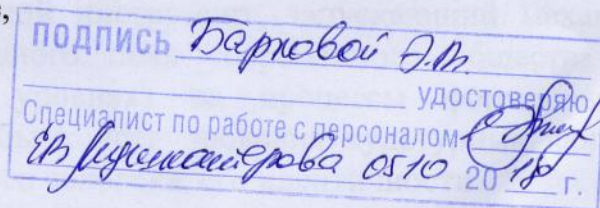 ПОДПИСЬ Барковой Э.В.
УДОСТОВЕРЯЮ
Специалист по работе с персоналом
ЕВ 0510 2018 г.